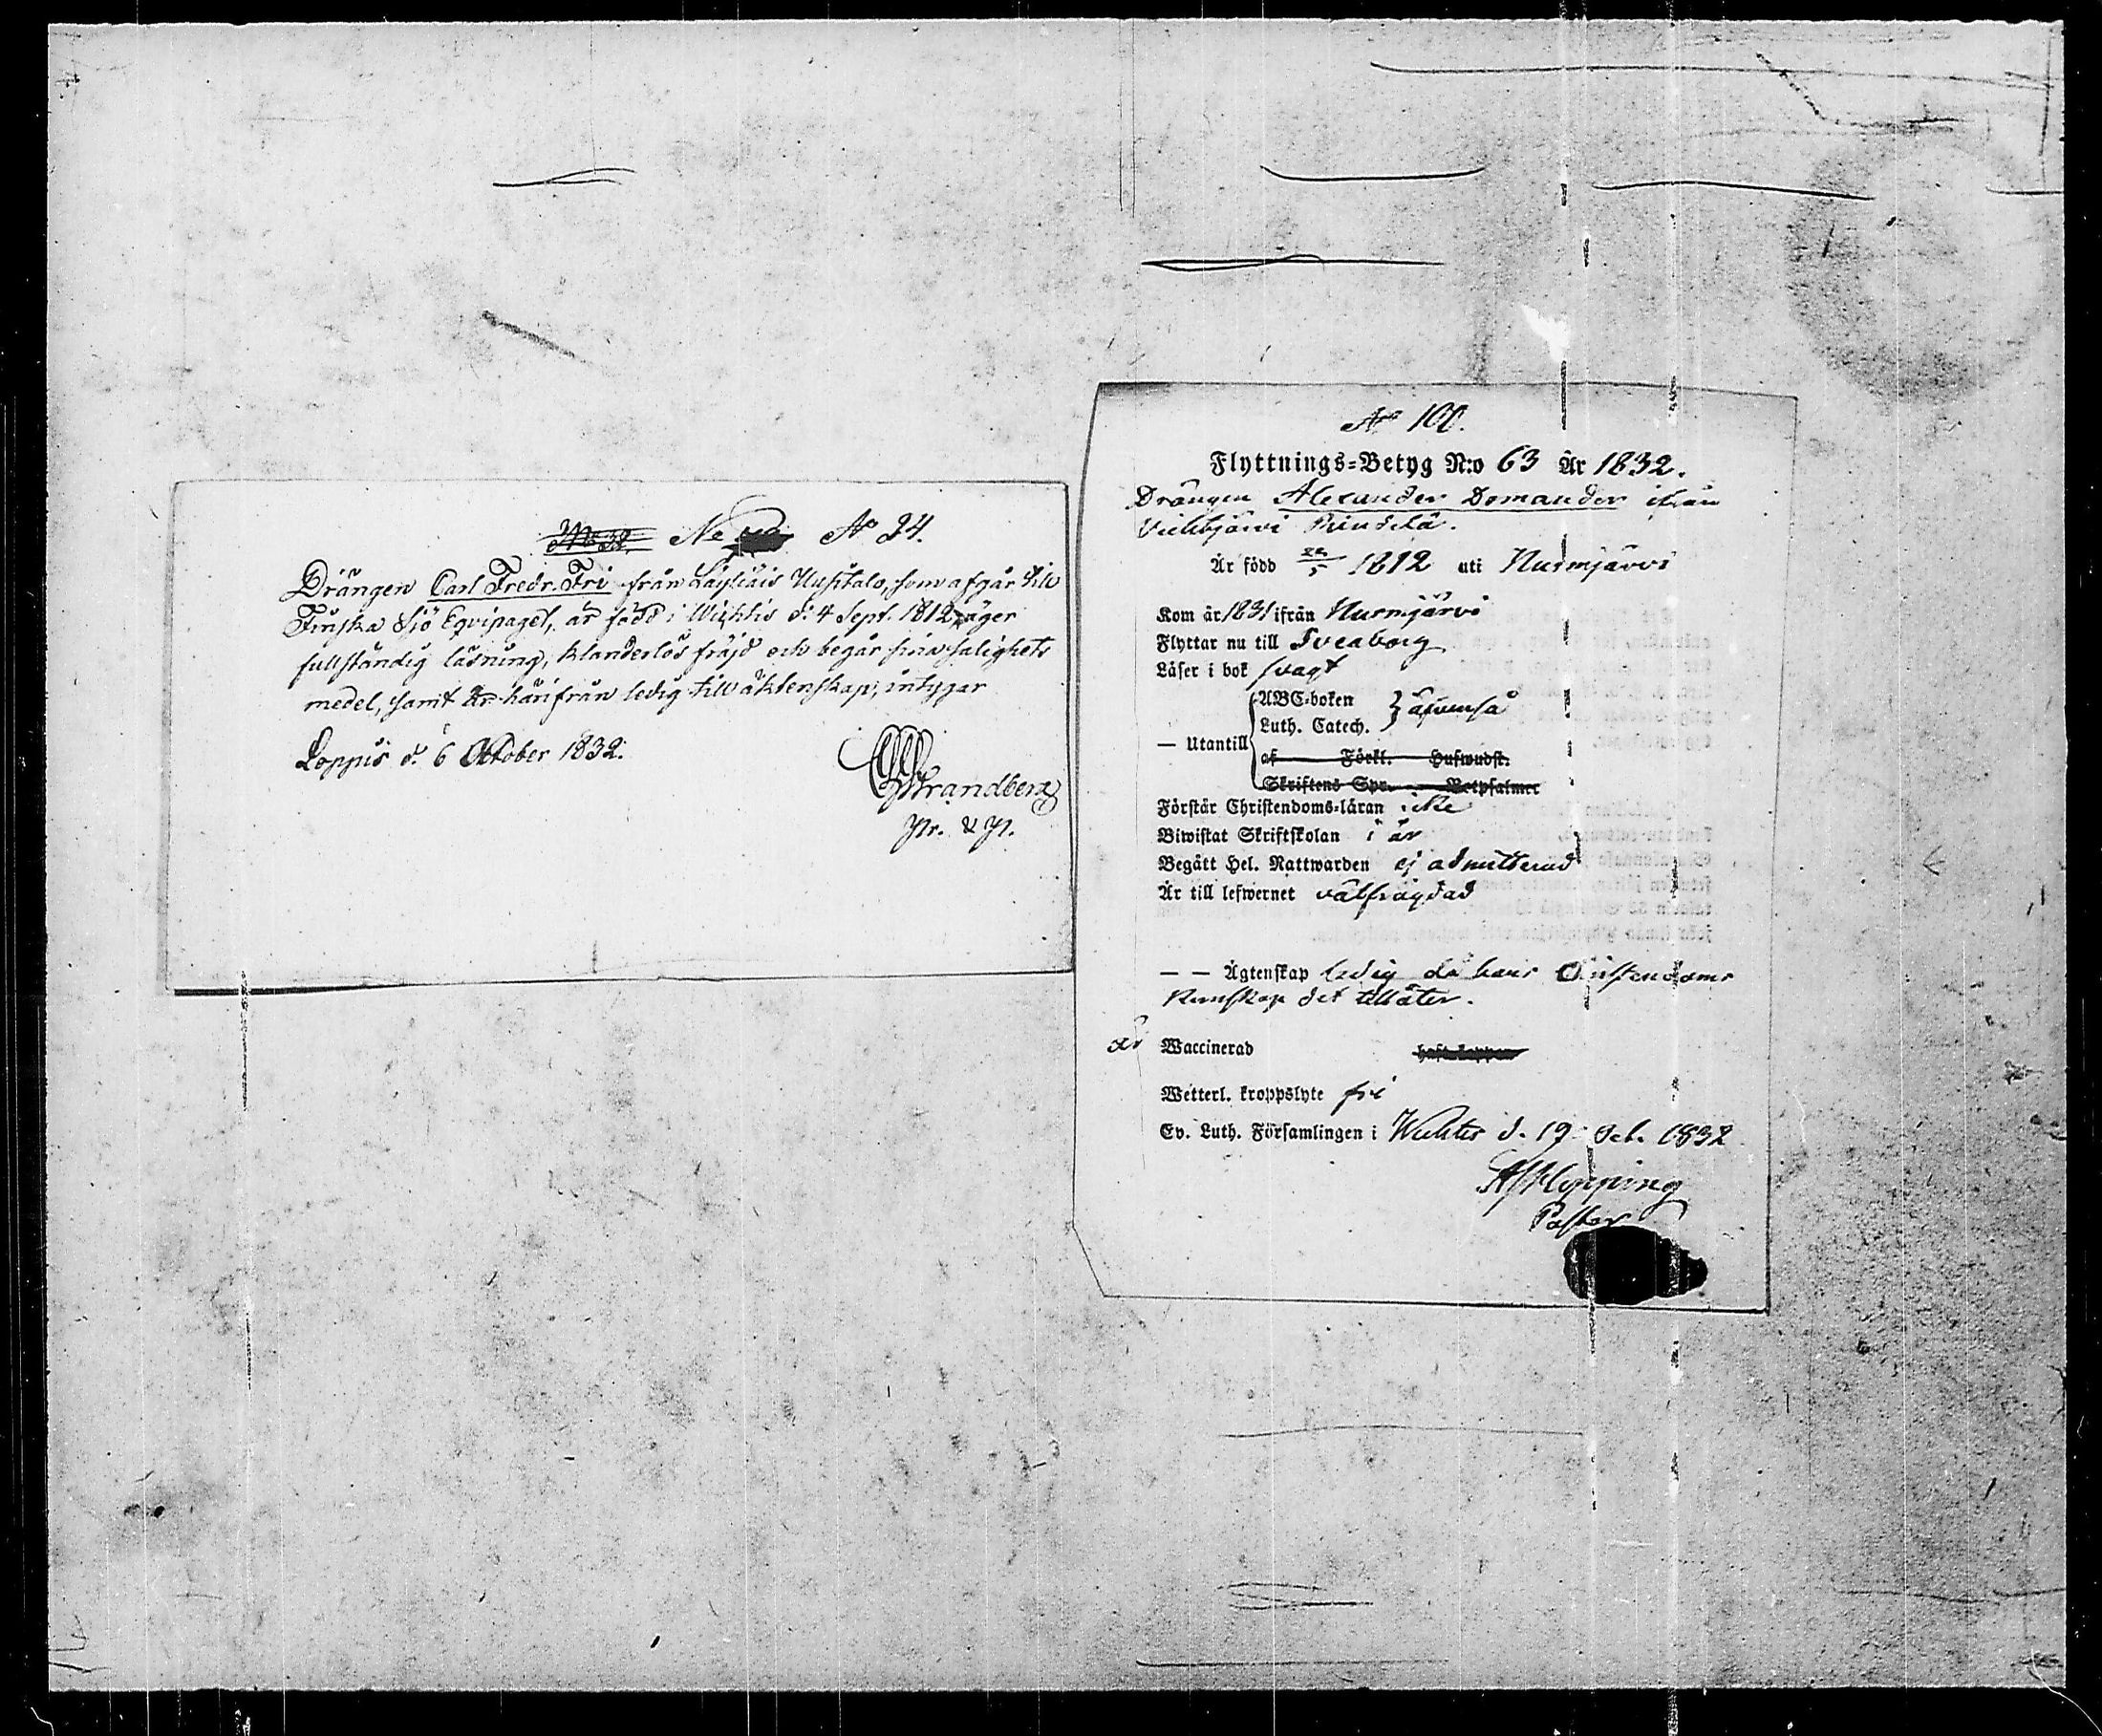 No 24.
Drängen Carl Fredr. Fri från Läyliäis Uusitalo, som afgår till
Finska Sjö Eqvipaget, är född i Wichtis d. 4 Sept. 1812, äger
fullständig läsning, klanderlös fräjd och begår sina salighets
medel, samt är härifrån ledig till äktenskap; intygar
Loppis d. 6 Oktober 1832.
Strandberg
No 100.
Flyttnings-Betyg N:o 63 År 1832.
Drängen Alexander Domander ifrån
Är född 1812 uti Nurmjärvi
Kom år 1831 ifrån Nurmjärvi
Flyttar nu till Sveaborg
Läser i bok svagt
ABC-boken
Luth. Catech. } äfvenså
— Utantill
af Förkl. Hufwudst.
Skriftens Spr. Botpsalmer
Förstår Christendoms-läran icke
Biwistat Skriftskolan i år
Begått Hel. Nattwarden ej admitterad
Är till lefwernet välfrägdad
— — Ägtenskap ledig då hans Christendoms
kunskap det tillåter.
är Waccinerad haft koppor
Wetterl. kroppslyte fri
Ev. Luth. Församlingen i Wichtis d. 19 Oct. 1832
Hipping
Pastor